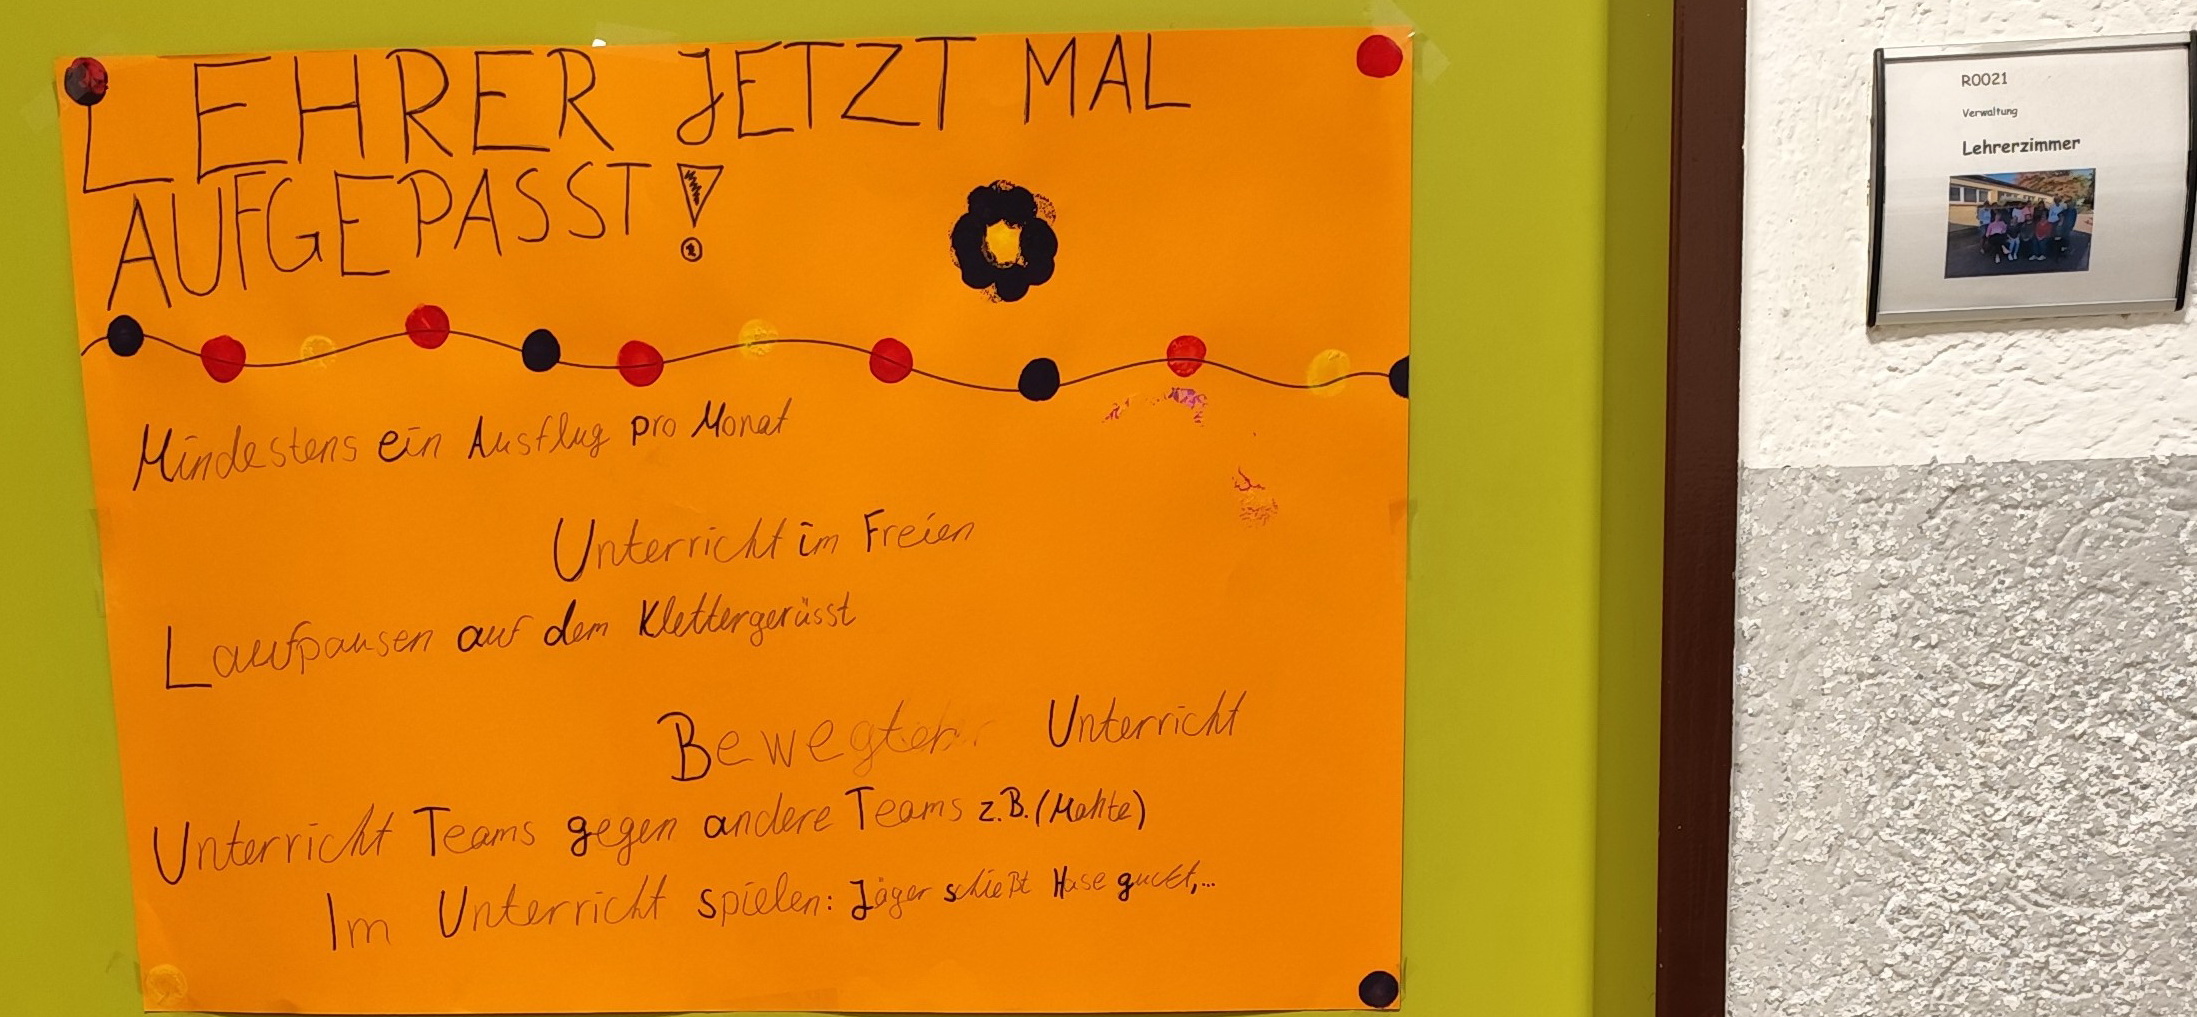 LEHRER JETZT MAL
AUFGEPASST!
Mindestens ein Ausflug pro Monat
Unterricht im Freien
Laufpausen auf dem Klettergerüsst
Bewegter Unterricht
Unterricht Teams gegen andere Teams z.B. (Mahte)
Im Unterricht spielen: Jäger schießt Hase guckt,...
R0021
Verwaltung
Lehrerzimmer